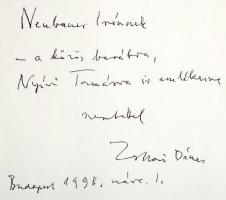 Neubauer Irénnek
– a közös barátra,
Nyíri Tamásra is emlékezve
szeretettel
Dénes
Budapest 1998. márc. 1.